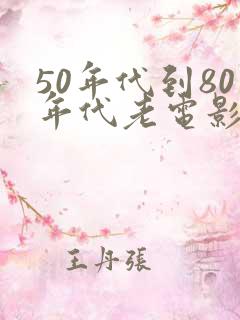 50年代到80
年代老电影
王丹張